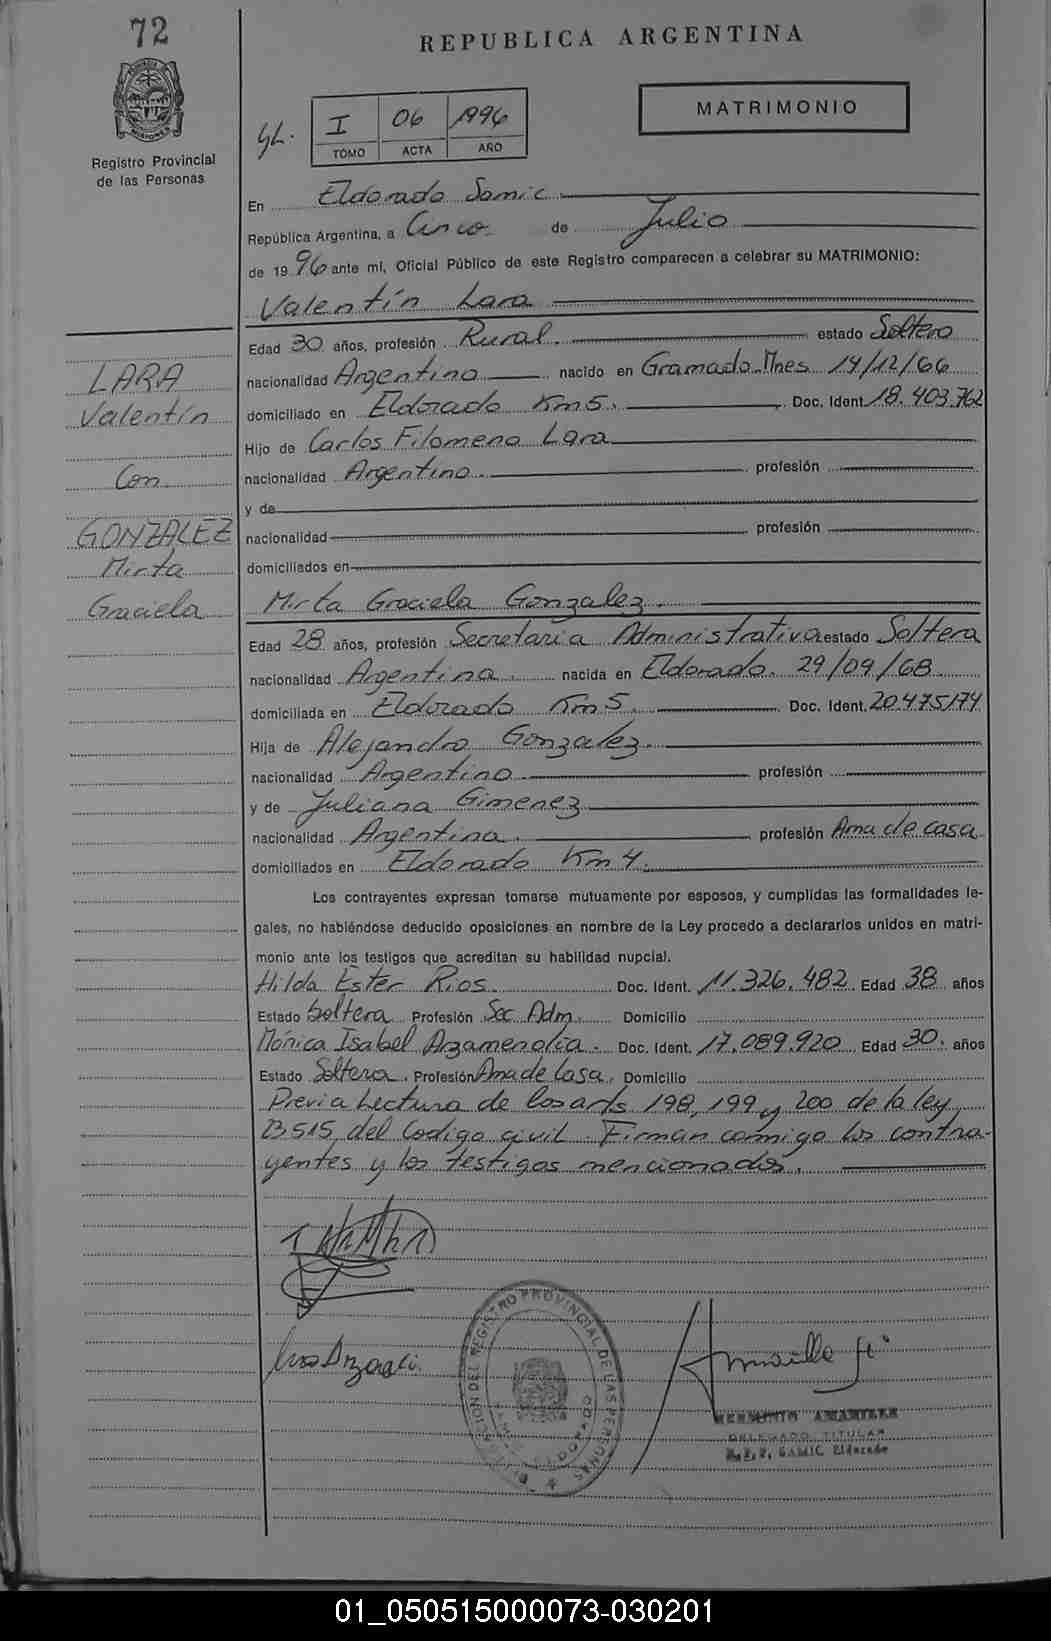 72
REPUBLICA ARGENTINA
MATRIMONIO
I 06 1996
TOMO ACTA AÑO
Registro Provincial
de las Personas
En Eldorado Samic
República Argentina, a Cinco de Julio
de 1996 ante mí, Oficial Público de este Registro comparecen a celebrar su MATRIMONIO:
Valentín Lara
Edad 30 años, profesión Rural. estado Soltero
nacionalidad Argentino nacido en Gramado-Mnes 14/12/66
domiciliado en Eldorado Km 5. Doc. Ident. 18.403.762
Hijo de Carlos Filomeno Lara
nacionalidad Argentino. profesión
y de
nacionalidad profesión
domiciliados en
Mirta Graciela Gonzalez.
Edad 28 años, profesión Secretaria Administrativa estado Soltera
nacionalidad Argentina. nacida en Eldorado. 29/09/68
domiciliada en Eldorado Km 5. Doc. Ident. 20.475.174
Hija de Alejandro Gonzalez.
nacionalidad Argentino profesión
y de Juliana Gimenez
nacionalidad Argentina. profesión Ama de casa
domiciliados en Eldorado Km 4.
LARA
Valentín
Con
GONZALEZ
Mirta
Graciela
Los contrayentes expresan tomarse mutuamente por esposos, y cumplidas las formalidades le-
gales, no habiéndose deducido oposiciones en nombre de la Ley procedo a declararlos unidos en matri-
monio ante los testigos que acreditan su habilidad nupcial.
Hilda Ester Rios. Doc. Ident. 11.326.482 Edad 38 años
Estado Soltera Profesión Sec Adm. Domicilio
Mónica Isabel Arzamendia. Doc. Ident. 17.089.920 Edad 30. años
Estado Soltera. Profesión Ama de Casa. Domicilio
Previa Lectura de los arts 198, 199 y 200 de la ley
23515 del Codigo civil. Firman conmigo los contra-
yentes y los testigos mencionados.
DELEGADO TITULAR
R.P.P. SAMIC Eldorado
01_050515000073-030201